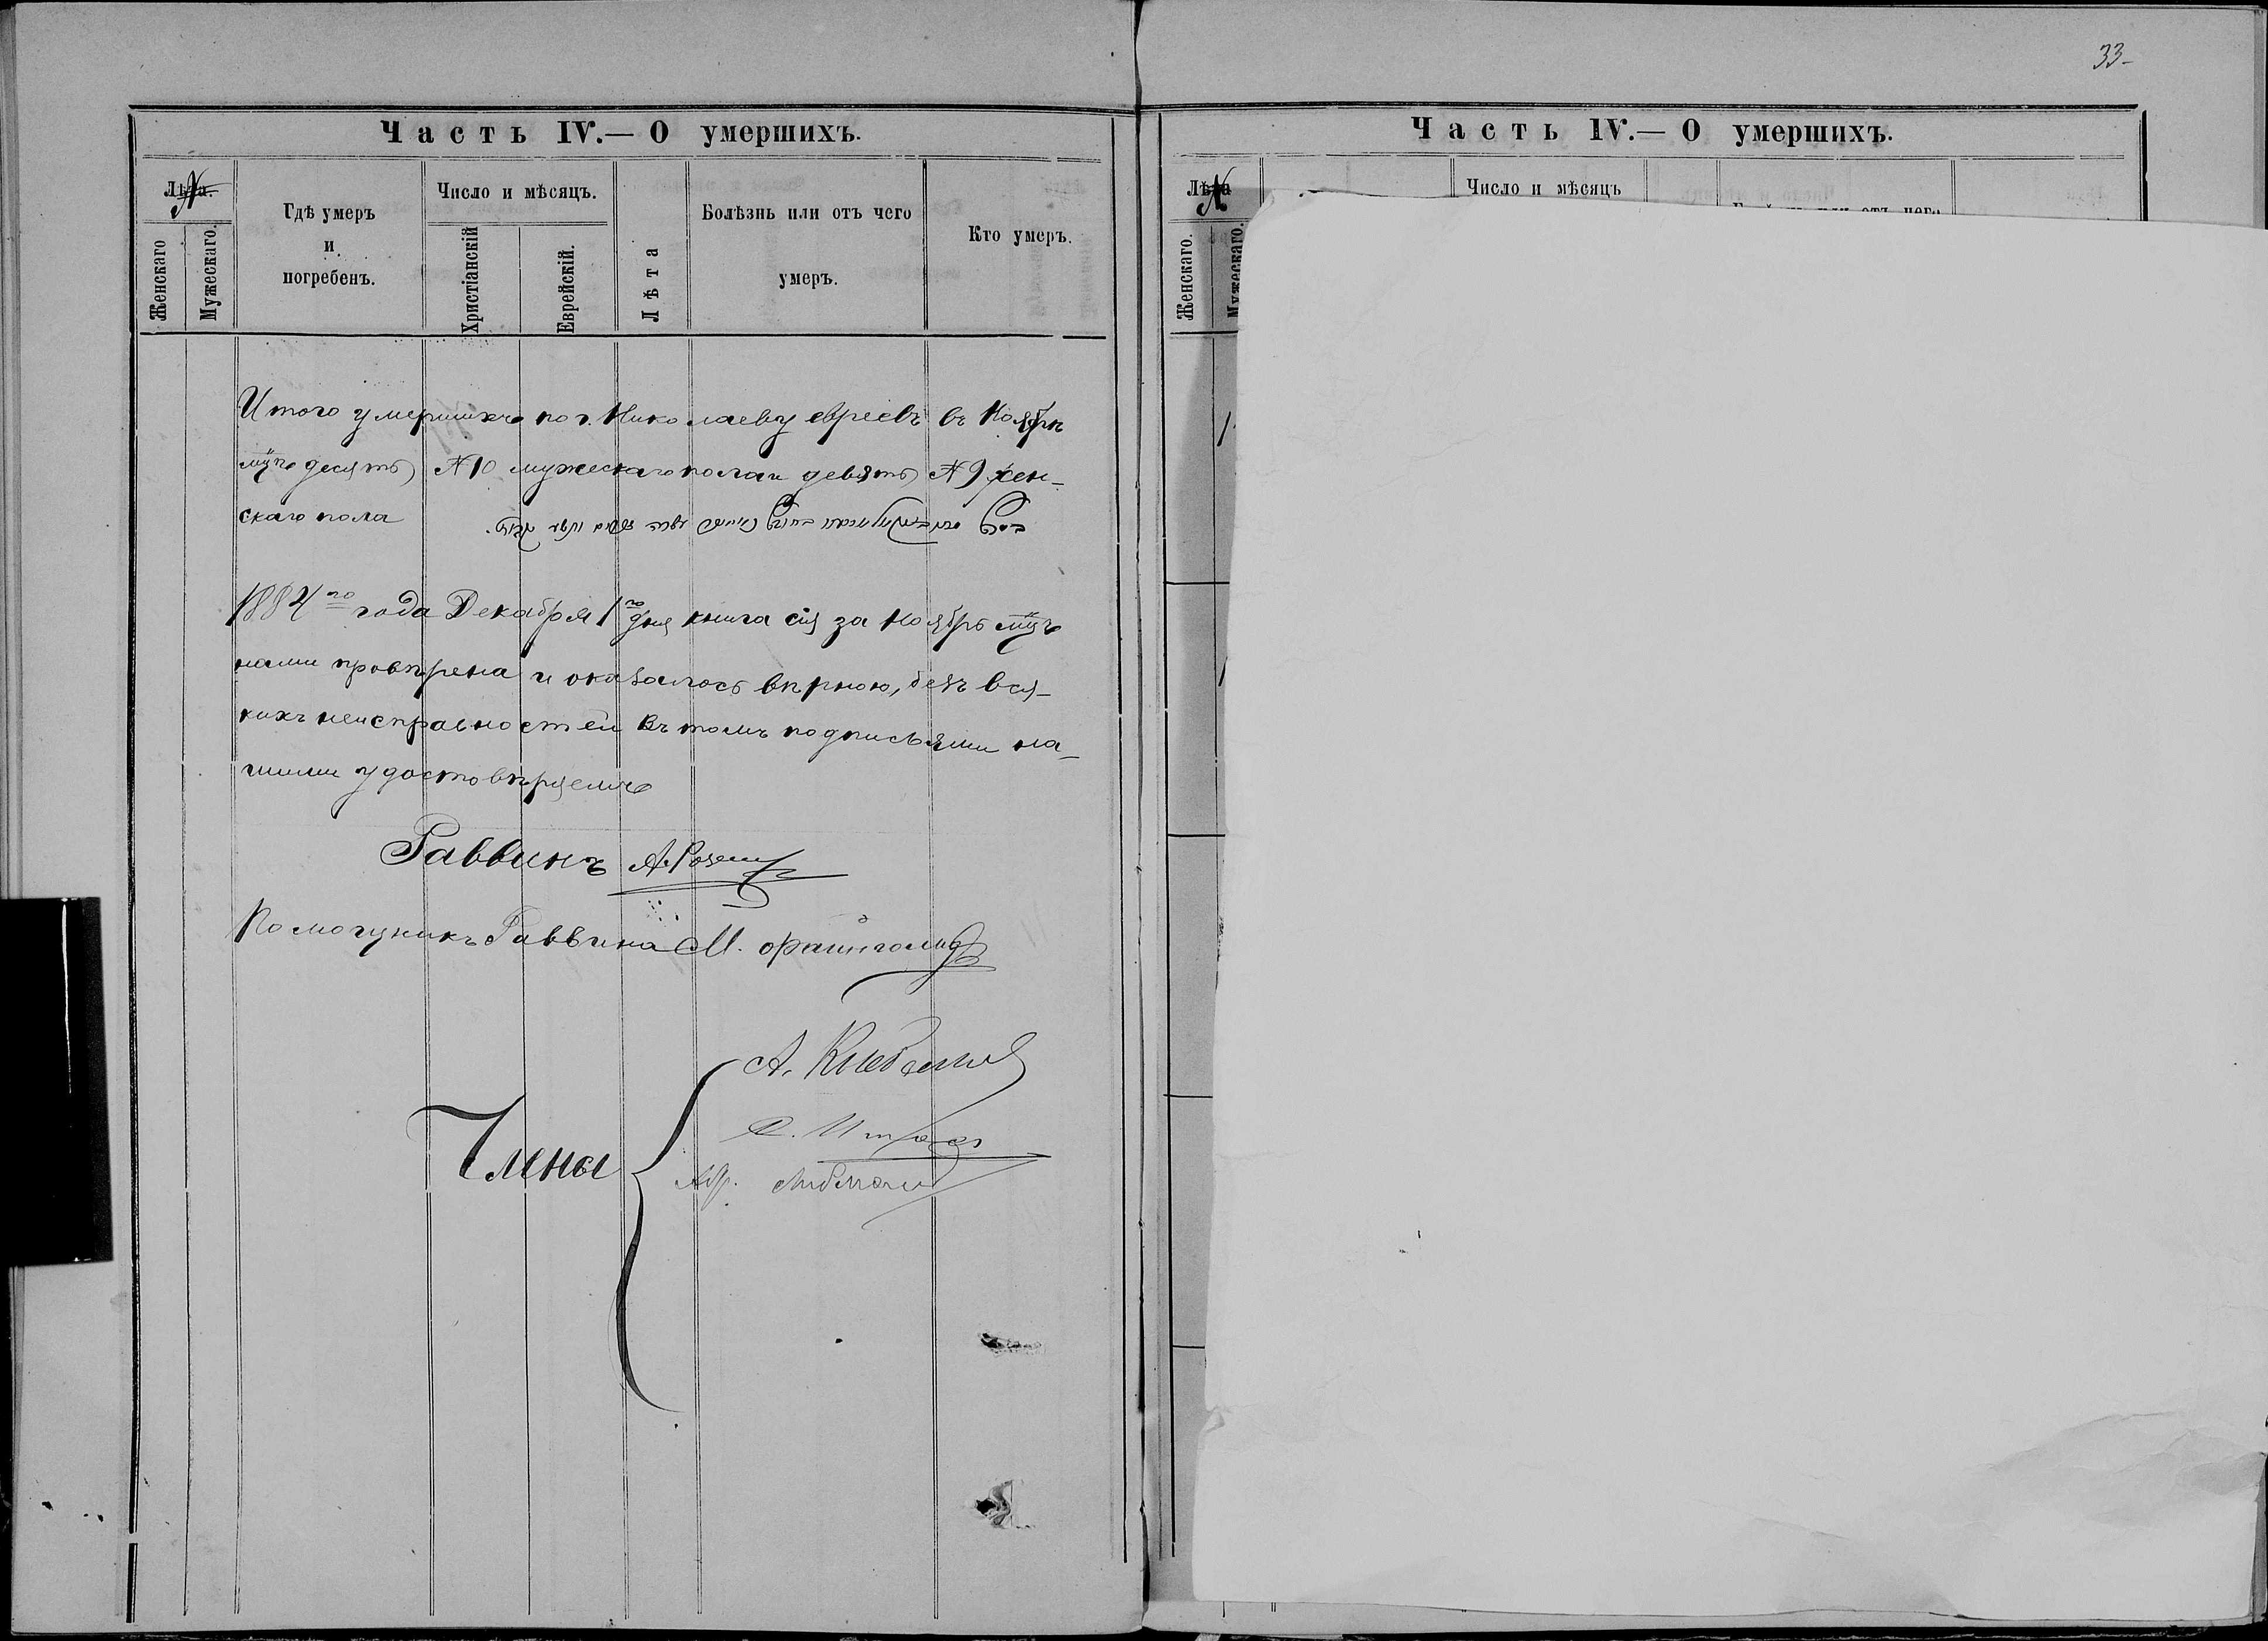 33-
Часть IV.— О умершихъ.
Лѣта.
N
Женскаго
Мужескаго.
Гдѣ умеръ
и
погребенъ.
Число и мѣсяцъ.
Христіанскій
Еврейскій.
Лѣта
Болѣзнь или отъ чего
умеръ.
Кто умеръ.
Итого умершихъ по г. Николаеву евреевъ въ Ноябрѣ
м̃цѣ десять N 10 мужескаго пола и девять N 9 жен-
скаго пола
1884го года Декабря 1го дня книга сія за Ноябрь м̃цъ
нами провѣрена и оказалось вѣрною, безъ вся-
кихъ неисправностей въ томъ подписьями на-
шими удостовѣряемъ
Раввинъ
Помощникъ Раввина М.
Члены
А.
Часть IV.— О умершихъ.
Лѣта
N
Женскаго.
Мужескаго.
Число и мѣсяцъ
отъ чего
1
1